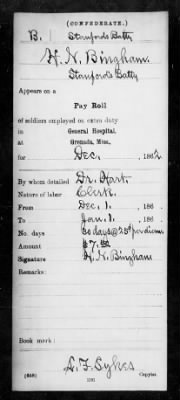 (CONFEDERATE.)
B. Stanford's Batty
H. N. Bingham.
Stanford's Batty
Appears on a
Pay Roll
of soldiers employed on extra duty
in General Hospital,
at Grenada, Miss.,
for Dec., 1862
By whom detailed Dr. Hart.
Nature of labor Clerk.
From Dec. 1. , 186 .
To Jan. 1. , 186 .
No. days 30 days @ 25¢ per diem.
Amount $7.50
Signature H. N. Bingham
Remarks:
Book mark:
L. T. Sykes
Copyist.